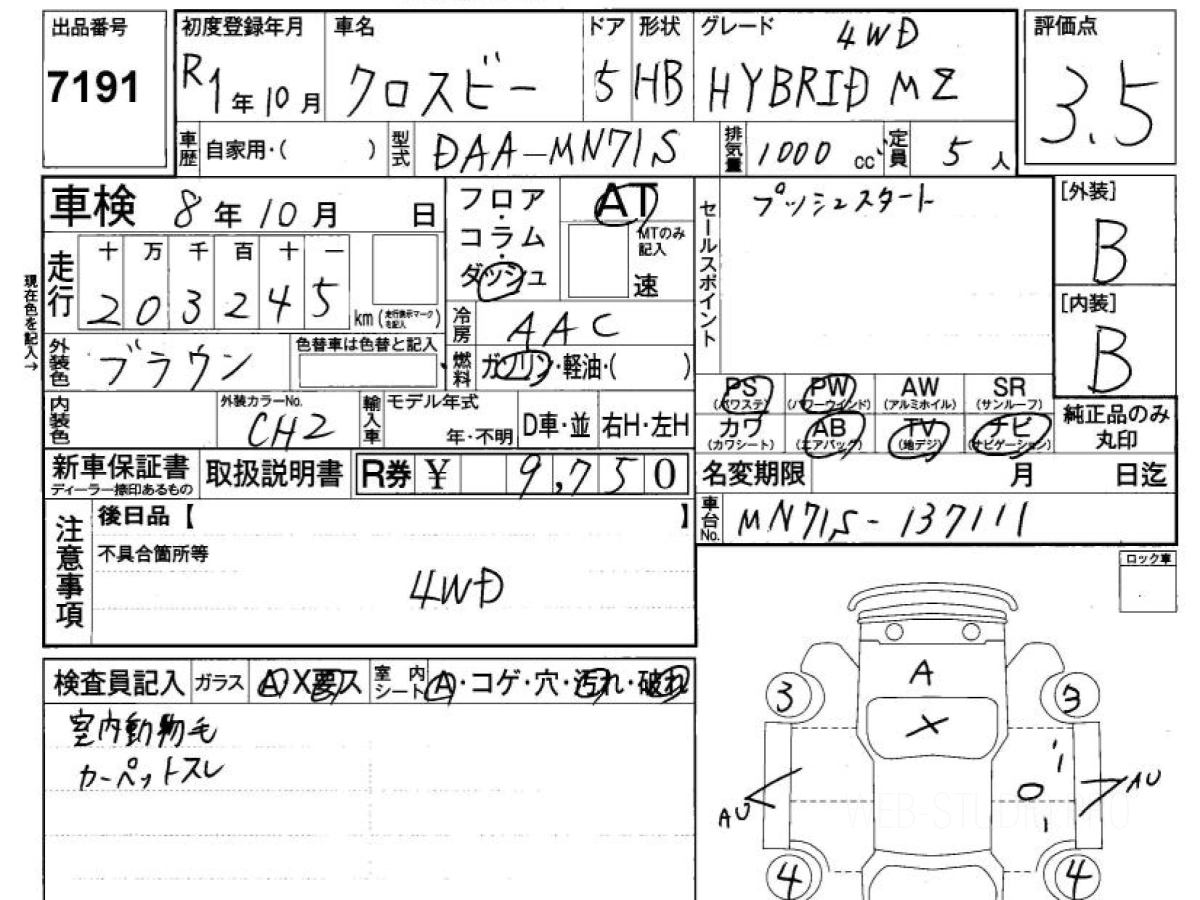 出品番号
7191
初度登録年月
R1年10月
車名
クロスビー
ドア
5
形状
HB
グレード
4WD
HYBRID MZ
評価点
3.5
車歴
自家用・( )
型式
DAA-MN71S
排気量
1000 cc
定員
5人
車検 8年10月 日
フロア
・
コラム
・
ダッシュ
AT
MTのみ
記入
速
セールスポイント
プッシュスタート
[外装]
B
[内装]
B
現在色を記入→
走行
十 万 千 百 十 一
2 0 3 2 4 5
km (走行表示マークを記入)
冷房
AAC
外装色
ブラウン
色替車は色替と記入
燃料
ガソリン・軽油・( )
PS
(パワステ)
PW
(パワーウインド)
AW
(アルミホイル)
SR
(サンルーフ)
カワ
(カワシート)
AB
(エアバッグ)
TV
(地デジ)
ナビ
(ナビゲーション)
純正品のみ
丸印
内装色
外装カラーNo.
CH2
輸入車
モデル年式
年・不明
D車・並
右H・左H
新車保証書
ディーラー捺印あるもの
取扱説明書
R券 ¥ 9,750
名変期限 月 日迄
車台No.
MN71S-137111
注意事項
後日品【 】
不具合箇所等
4WD
ロック車
検査員記入
ガラス
A X要ス
室内
シート
A・コゲ・穴・汚れ・破れ
室内動物毛
カーペットスレ
A
3
3
X
AU
AU
WEB-STUDIO.RU
4
4